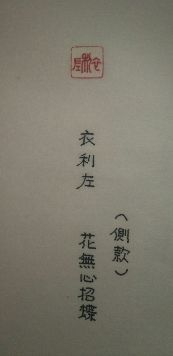 衣利左
(側款)
花無心招蝶